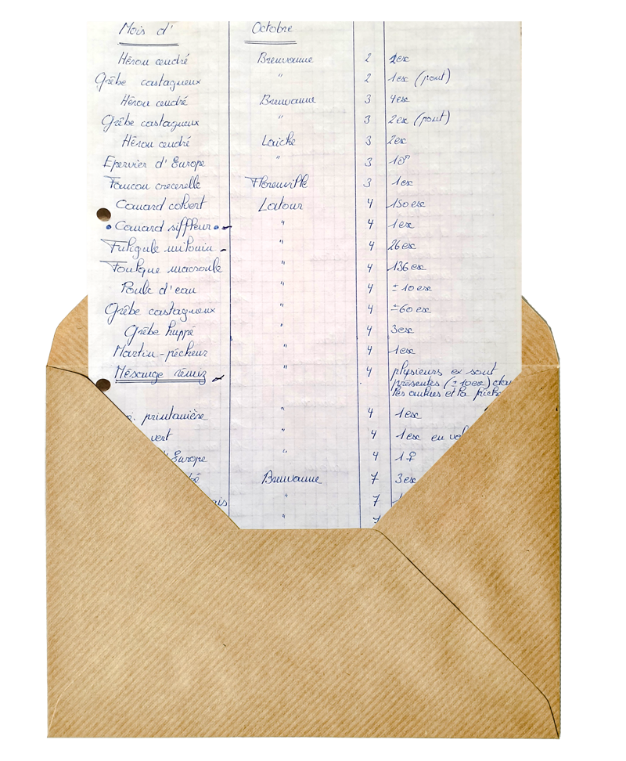 Mois d' Octobre
Héron cendré Breuvanne 2 2ex
Grêbe castagneux " 2 1ex (pont)
Héron cendré Breuvanne 3 4ex
Grêbe castagneux " 3 2ex (pont)
Héron cendré Laiche 3 2ex
Epervier d'Europe " 3 1
Faucon crecerelle Florenville 3 1ex
Canard colvert Latour 4 150ex
Canard siffleur " 4 1ex
Fuligule milouin " 4 26ex
Foulque macroule " 4 136ex
Poule d'eau " 4 ± 10ex
Grêbe castagneux " 4 ±60ex
Grêbe huppé " 4 3ex
Martin-pêcheur " 4 1ex
Mésange rémiz " 4 plusieurs ex sont
présentes (±10ex)
les
printanière " 4 1ex
vert " 4 1ex en vol
Europe " 4 1♀
Breuvanne 7 3ex
ais " 7 1
" 7